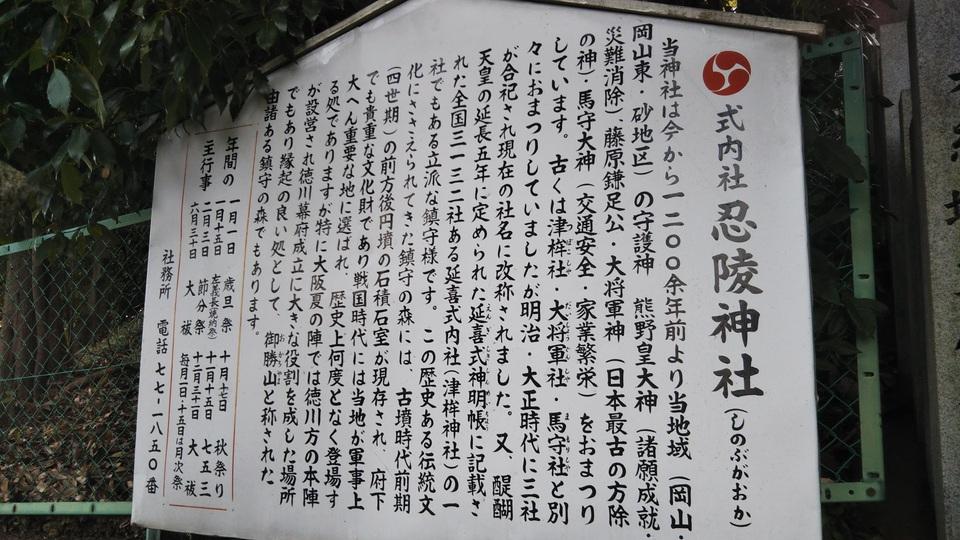 式内社 忍陵神社(しのぶがおか)
当神社は今から一二〇〇余年前より当地域(岡山・
岡山東・砂地区)の守護神 熊野皇大神(諸願成就・
災難消除)、藤原鎌足公・大将軍神(日本最古の方除
の神)馬守大神(交通安全・家業繁栄)をおまつり
しています。古くは津桙社・大将軍社・馬守社と別
々におまつりしていましたが明治・大正時代に三社
が合祀され現在の社名に改称されました。又、醍醐
天皇の延長五年に定められた延喜式神明帳に記載さ
れた全国三一三二社ある延喜式内社(津桙神社)の一
社でもある立派な鎮守様です。この歴史ある伝統文
化にささえられてきた鎮守の森には、古墳時代前期
(四世期)の前方後円墳の石積石室が現存され、府下
でも貴重な文化財であり戦国時代には当地が軍事上
大へん重要な地に選ばれ、歴史上何度となく登場す
る処でありますが特に大阪夏の陣では徳川方の本陣
が設営され徳川幕府成立に大きな役割を成した場所
でもあり縁起の良い処として、御勝山と称された
由諸ある鎮守の森でもあります。
年間の主行事
一月一日 歳旦祭
一月十五日 左義長焼納祭
二月三日 節分祭
六月三十日 大祓
十月十七日 秋祭り
十一月十五日 七五三
十二月三十一日 大祓
毎月一日・十五日は月次祭
社務所 電話 七七-一八五〇番